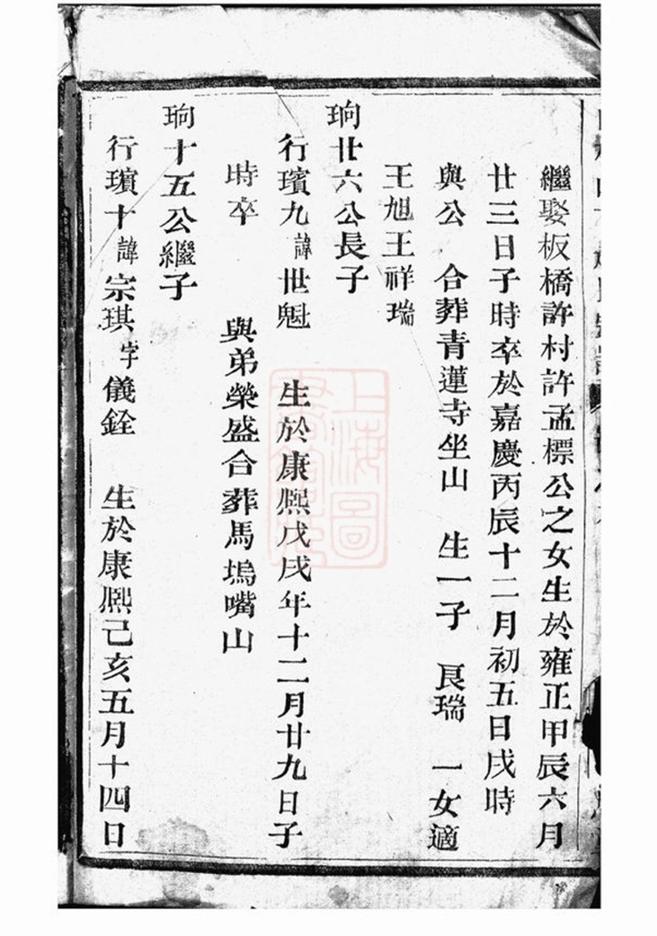 繼娶板橋許村許孟標公之女生於雍正甲辰六月
廿三日子時卒於嘉慶丙辰十二月初五日戌時
與公 合葬青蓮寺坐山 生一子 良瑞 一女適
王旭王祥瑞
珦廿六公長子
行璸九諱世魁 生於康熙戊戌年十二月廿九日子
時卒 與弟榮盛合葬馬塢嘴山
珦十五公繼子
行璸十諱宗琪字儀銓 生於康熙己亥五月十四日
上海圖